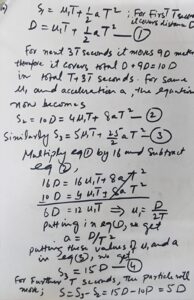 S₁ = u₁T + ½aT² ; For First T seconds
it covers distance D
D = u₁T + ½aT² —①
For next 3T seconds it moves 9D metre
therefore it covers total D + 9D = 10D
in total T + 3T seconds. For same
u₁ and acceleration a, the equation
now becomes
S₂ = 10D = 4u₁T + 8aT² —②
Similarly S₃ = 5u₁T + 25/2 aT² —③
Multiply eqⁿ ① by 16 and subtract
eqⁿ ②,
16D = 16u₁T + 8aT²
10D = 4u₁T + 8aT²
6D = 12u₁T ⇒ u₁ = D/2T
Putting in eqⁿ ①, we get
a = D/T²
putting these values of u₁ and a
in eqⁿ ③, we get
S₃ = 15D —④
For further T seconds, the particle will
move; S = S₃ - S₂ = 15D - 10D = 5D